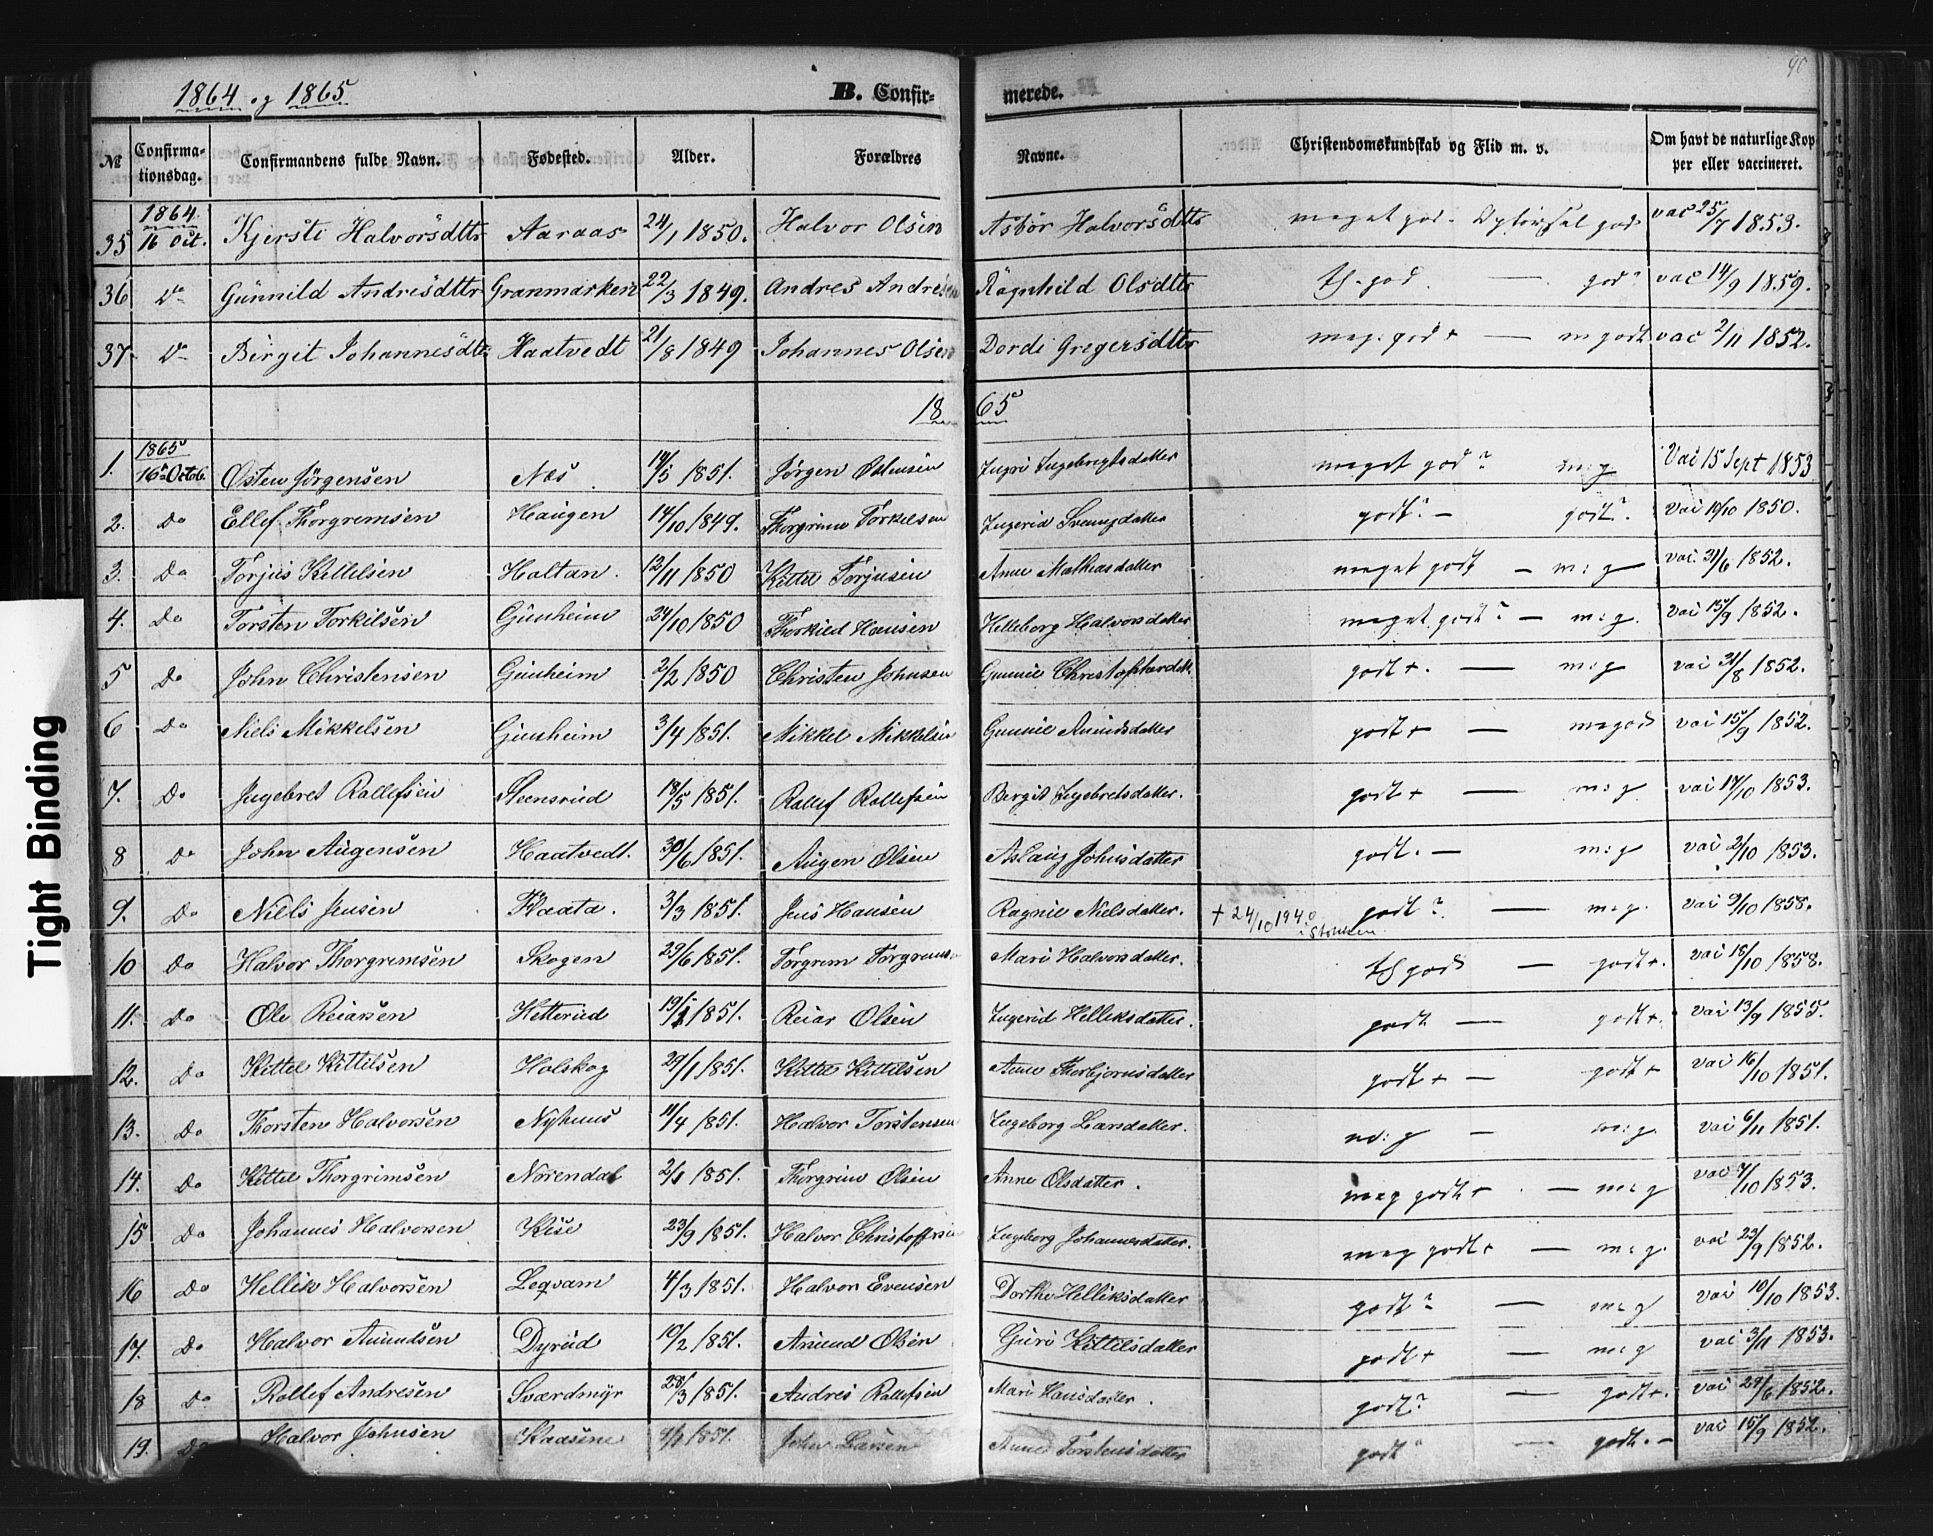 1864 og 1865 B. Confir- merede. 90
№ Confirma-tionsdag. Confirmandens fulde Navn. Fødested. Alder. Forældres Navne. Christendomskundskab og Flid m. v. Om havt de naturlige Kop-per eller vaccineret.
35 1864. 16 Oct. Kjersti Halvorsdttr Aaraas 24/1 1850. Halvor Olsen Asbør Halvorsdttr meget god. Opførsel god vac 25/7 1853.
36 Do Gunnild Andresdttr Granmarken 22/3 1849. Andres Andresen Ragnhild Olsdttr tf. god. — god? vac 14/9 1859.
37 Do Birgit Johannesdtr Haatvedt 21/8 1849 Johannes Olsen Dordi Gregersdttr meg: god + — m godt vac 2/11 1852.
1865
1. 1865 16de Octob. Østen Jørgensen Næs 14/5 1851. Jørgen Østensen Ingri Ingebregtsdatter meget god? m: g Vac 15 Sept 1853
2. Do Ellef Thorgremsen Haugen 14/10 1849. Thorgrim Torkelsen Ingerid Svennsdatter godt? — godt?. vac 19/10 1850.
3. Do Torjus Kittelsen Haltan. 12/11 1850 Kittel Torjusen Anne Mathiasdatter meget godt — m: g vac 21/6 1852.
4. Do Torsten Torkilsen Gunheim 24/10 1850 Thorkild Hansen Helleborg Halvorsdatter meget godt? — m: g. vac 15/9 1852.
5 Do John Christensen Gunheim 2/2 1850 Christen Johnsen Gunnil Christophersdatt godt +. — m: g vac 31/8 1852.
6 Do Niels Mikkelsen Gunheim 3/4 1851. Mikkel Mikkelsen Gunnil Amundsdatter godt + — m god vac 15/9 1852.
7. Do Ingebret Rollefsen Steensrud 18/5 1851. Rollef Rollefsen Bergit Ingebretsdatter. godt + — m: g. vac 17/10 1853.
8 Do John Augensen Haatvedt. 30/6 1851. Augen Olsen Aslaug Johnsdatter godt. — m: g vac 2/10 1853.
9. Do Niels Jensen Kaata. 3/3 1851. Jens Hansen Ragnil Nielsdatter. + 24/10 1940 i Stokken. godt? — m: g. vac 9/10 1858.
10 Do Halvor Thorgremsen Skogen 29/6 1851. Torgrem Torgremsen Mari Halvorsdatter. tf god — godt +. vac 18/10 1858.
11. Do Ole Reiarsen Hetterud 19/1 1851. Reiar Olsen Ingerid Helliksdatter. godt — godt +. vac 13/9 1855.
12. Do Kittel Kittilsen Holskog 29/1 1851. Kittel Kittilsen Anne Thorbjørnsdatter godt + — godt + vac 16/10 1851.
13. Do Thorsten Halvorsen Nyhuus 11/4 1851. Halvor Torstensen Ingeborg Larsdatter. m: g — m: g. vac 6/11 1851.
14. Do Kittel Thorgrimsen Norendal 2/1 1851. Thorgrim Olsen Anne Olsdatter. meg godt + — m: g vac 7/10 1853.
15 Do Johannes Halvorsen Kise 23/9 1851. Halvor Christoffersen Ingeborg Johannesdatter. meg godt + — m: g. vac 23/9 1852.
16 Do Hellik Halvorsen Leqvam 4/3 1851. Halvor Evensen Dorthe Helliksdatter godt? — m: g vac 10/10 1853.
17. Do Halvor Amundsen Dyrud 10/2 1851. Amund Olsen Guri Kittilsdatter godt + — m: g vac 3/11 1853.
18 Do Rollef Andresen Sværdmyr 28/3 1851. Andres Rollefsen Mari Hansdatter. godt? — godt +. vac 29/6 1852.
19. Do Halvor Johnsen Kaasene 1851. John Larsen Anne Torstensdatter godt — godt. — vac 15/9 1852.
Tight Binding